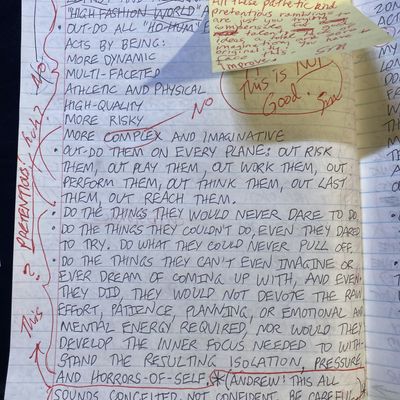 "HIGH FASHION WORLD"
• OUT-DO ALL "HO-HUM"
ACTS BY BEING:
MORE DYNAMIC
MULTI-FACETED
ATHLETIC AND PHYSICAL
HIGH-QUALITY
MORE RISKY
MORE COMPLEX AND IMAGINATIVE
• OUT-DO THEM ON EVERY PLANE: OUT RISK
THEM, OUT PLAY THEM, OUT WORK THEM, OUT
PERFORM THEM, OUT THINK THEM, OUT LAST
THEM, OUT REACH THEM.
• DO THE THINGS THEY WOULD NEVER DARE TO DO
• DO THE THINGS THEY COULDN'T DO, EVEN THEY DARED
TO TRY. DO WHAT THEY COULD NEVER PULL OFF
• DO THE THINGS THEY CAN'T EVEN IMAGINE OR
EVER DREAM OF COMING UP WITH, AND EVEN
THEY DID, THEY WOULD NOT DEVOTE THE RAW
EFFORT, PATIENCE, PLANNING, OR EMOTIONAL AN
MENTAL ENERGY REQUIRED, NOR WOULD THEY
DEVELOP THE INNER FOCUS NEEDED TO WITH-
STAND THE RESULTING ISOLATION, PRESSURE
AND HORRORS-OF-SELF. * (ANDREW! THIS ALL
SOUNDS CONCEITED, NOT CONFIDENT. BE CAREFUL
All these pathetic and
pretentious ramblings
are just you trying
talent
ideas
imagin
original
face
Improve.
This is NOT
Good.
NO
PRETENTIOUS!
This